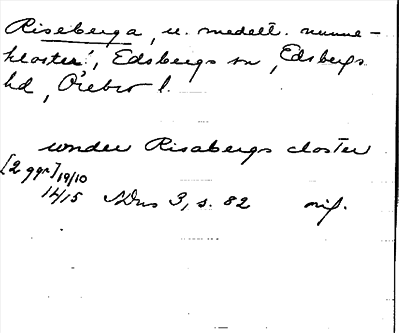 Riseberga, u. medelt. nunne-
kloster, Edsbergs sn, Edsbergs
hd, Örebro l.
wnder Risabergs closter
[2 ggr] 19/10
14/15 3, s. 82